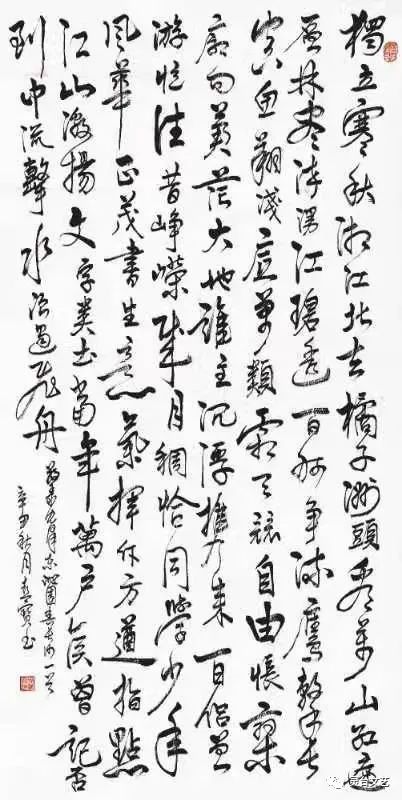 獨立寒秋湘江北去橘子洲頭看萬山红遍
层林尽染漫江碧透百舸争流鷹擊長
空鱼翔淺底萬類霜天競自由悵寥
廓问蒼茫大地誰主沉浮攜來百侣曾
游忆往昔峥嵘歲月稠恰同學少年
风華正茂書生意氣揮斥方遒指點
江山激揚文字粪土當年萬户侯曾記否
到中流擊水浪遏飛舟
沁園春長沙一首
辛丑秋月